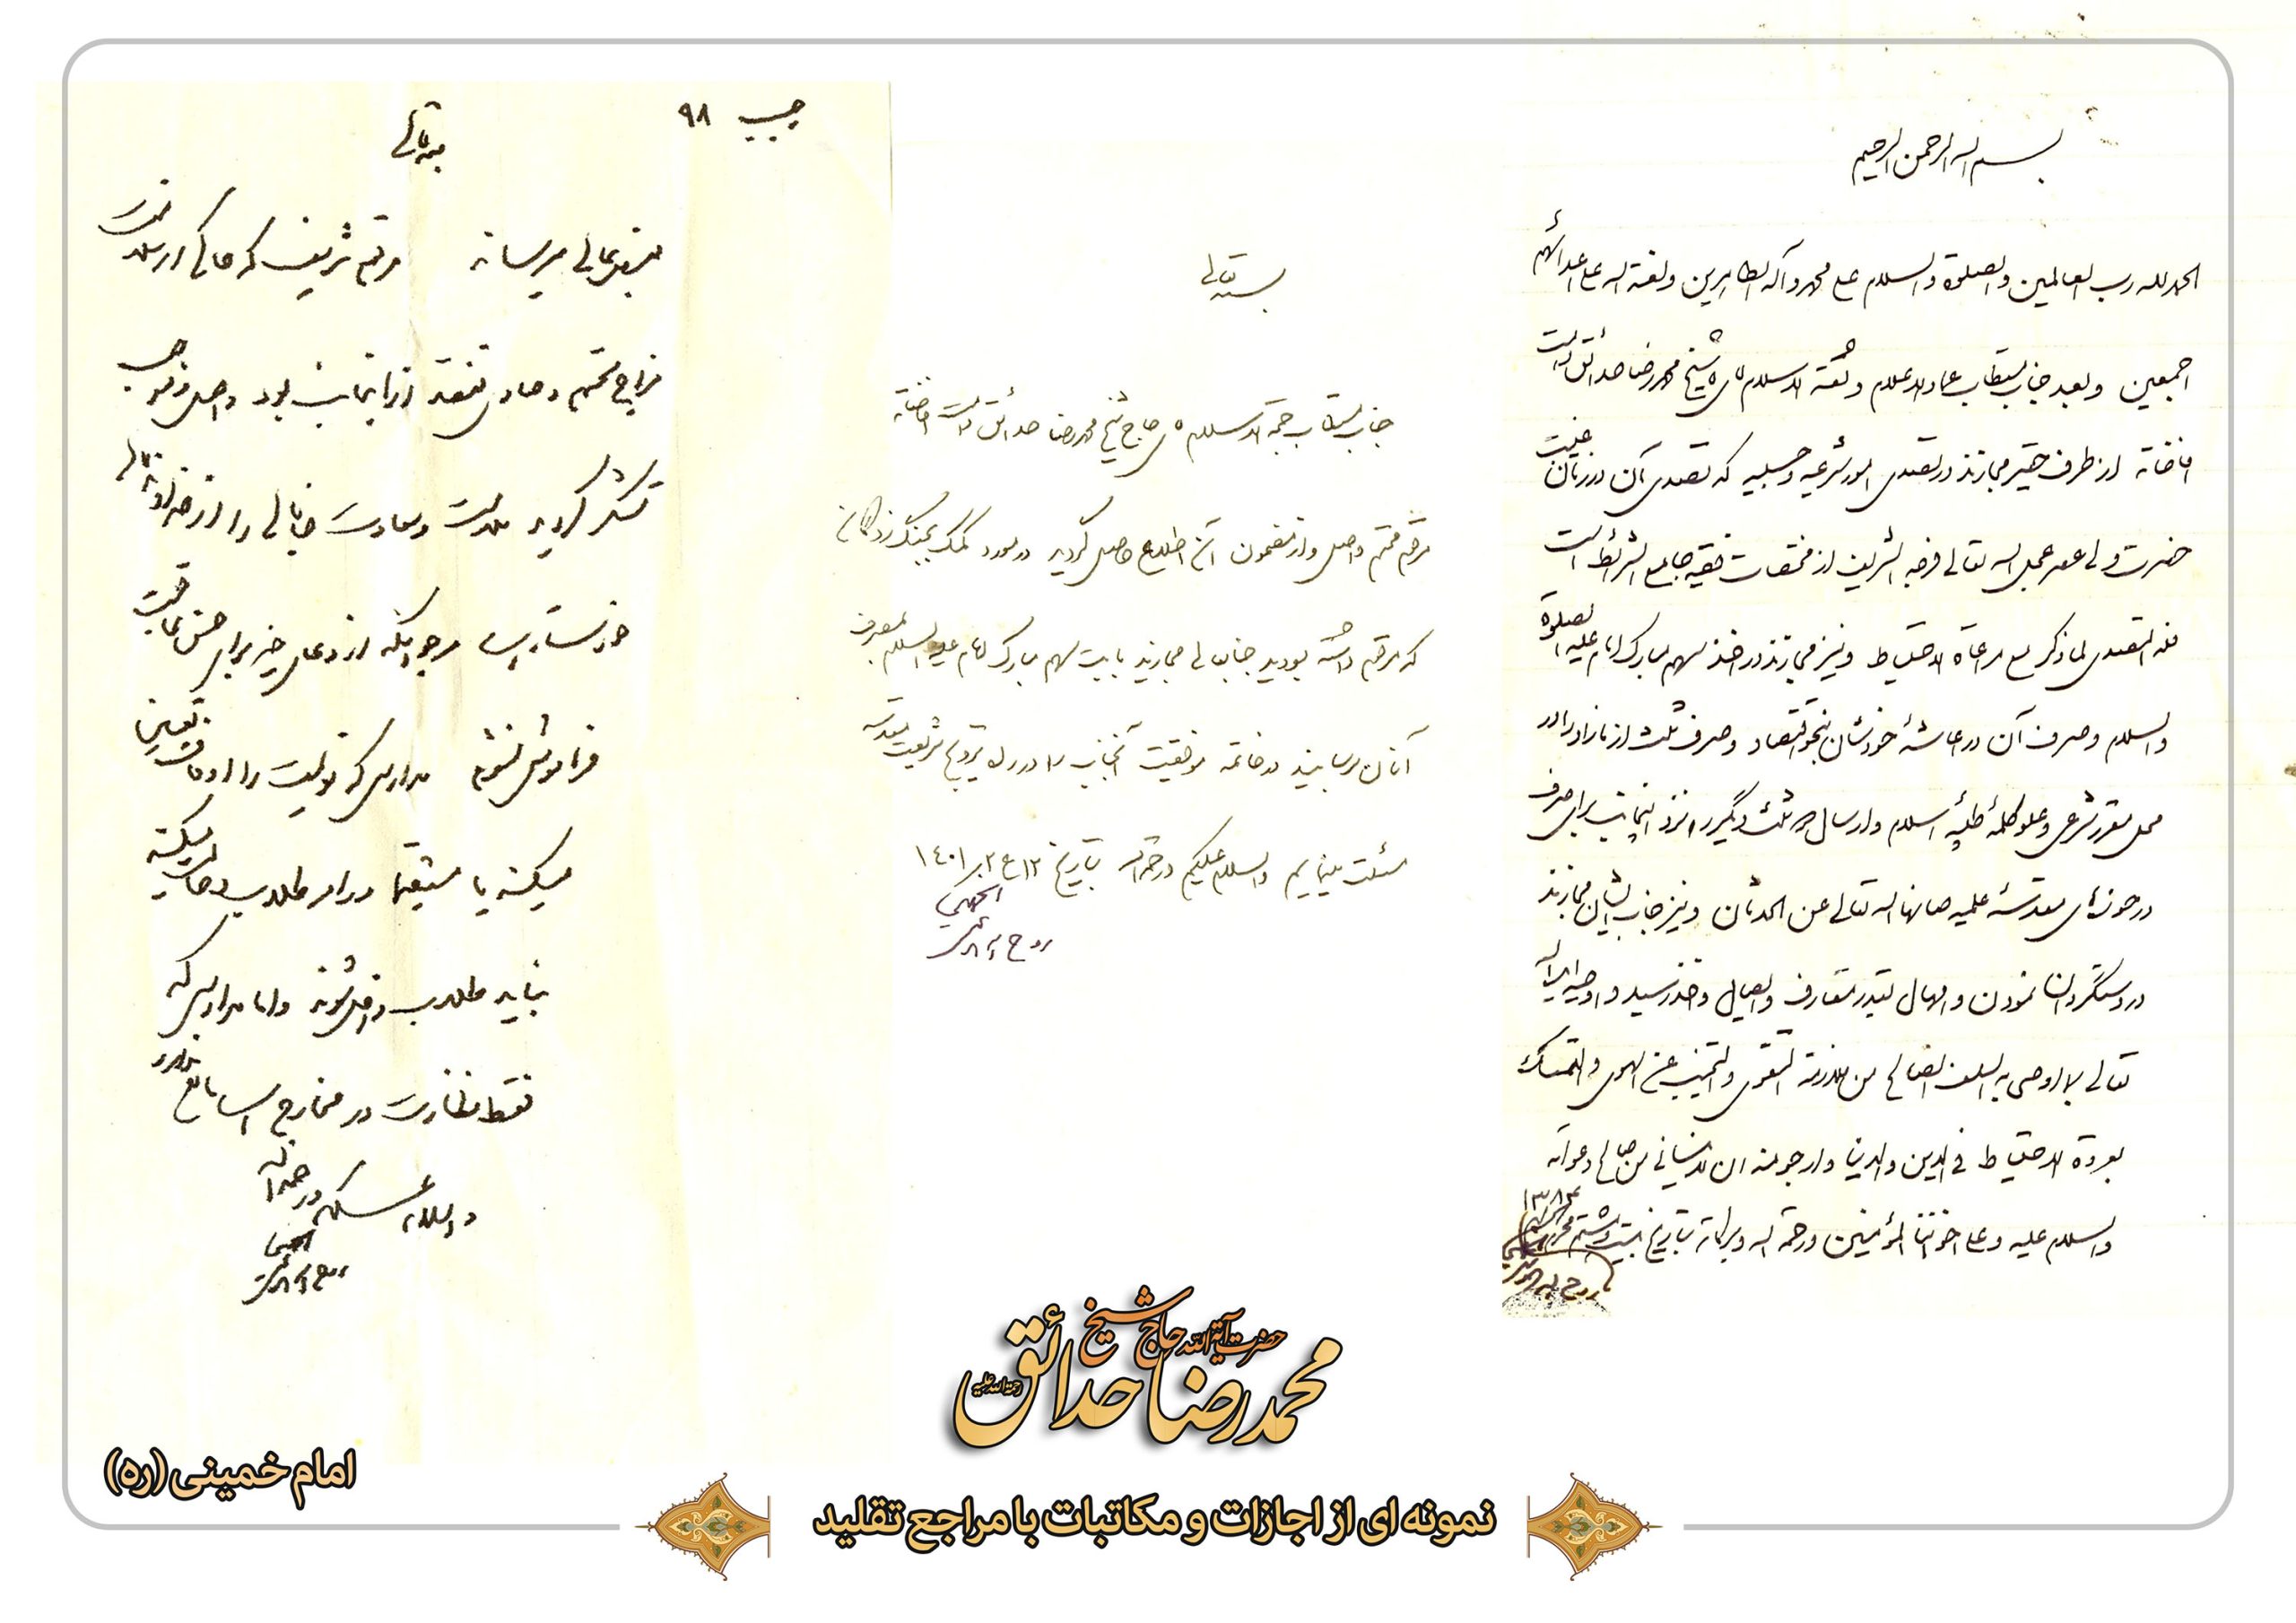 بسم الله الرحمن الرحیم
الحمد لله رب العالمین والصلوة والسلام علی محمد وآله الطاهرین ولعنة الله علی اعدائهم
اجمعین وبعد جناب مستطاب عماد الاعلام وثقة الاسلام آقای شیخ محمد رضا حدائق دامت
افاضاته از طرف حقیر مجازند در تصدی امور شرعیه وحسبیه که تصدی آن در زمان غیبت
حضرت ولی عصر عجل الله تعالی فرجه الشریف از مختصات فقیه جامع الشرائط است
فله التصدی لما ذکر مع مراعاة الاحتیاط ونیز مجازند در اخذ سهم مبارک امام علیه الصلوة
والسلام وصرف آن در اعاشهٔ خودشان بنحو اقتصاد وصرف ثلث از مازاد را در
محل مقرر شرعی وعلو کلمهٔ طیبه اسلام وارسال دو ثلث دیگر را نزد اینجانب برای صرف
در حوزه‌های مقدسهٔ علمیه صانها الله تعالی عن الحدثان ونیز جناب ایشان مجازند
در دستگردان نمودن وامهال بقدر متعارف وایصال واخذ رسید واوصیه ایده الله
تعالی بما اوصی به السلف الصالح من ملازمة التقوی والتجنب عن الهوی والتمسک
بعروة الاحتیاط فی الدین والدنیا وارجو منه ان لاینسانی من صالح دعواته
والسلام علیه وعلی اخواننا المؤمنین ورحمة الله وبرکاته بتاریخ بیست وهشتم محرم الحرام ۱۳۸۳
روح الله الموسوی الخمینی
بسمه تعالی
جناب مستطاب حجة الاسلام آقای حاج شیخ محمد رضا حدائق دامت افاضاته
مرقوم محترم واصل واز مضمون آن اطلاع حاصل گردید در مورد کمک بجنگ زدگانی
که مرقوم داشته بودید جنابعالی مجازید بابت سهم مبارک امام علیه السلام بمصرف
آنان برسانید در خاتمه موفقیت آنجناب را در راه ترویج شریعت مقدسه
مسئلت مینمایم والسلام علیکم ورحمة الله بتاریخ ۱۲ ع ۲ ۱٤۰۱
روح الله الموسوی الخمینی
۹۸
بسمه تعالی
بعرض عالی میرساند مرقوم شریف که حاکی از سلامت
مزاج محترم وحاوی تفقد از اینجانب بود واصل وموجب
تشکر گردید سلامت وسعادت جنابعالی را از خداوند تعالی
خواستار است مرجو آنکه از دعای خیر برای حسن عاقبت
فراموش نشوم مدارسی که تولیت را اوقاف تعیین
میکند یا مستقیما در امر طلاب دخالت میکند
نباید طلاب داخل شوند واما مدارسی که
فقط نظارت در مخارج است مانع ندارد
والسلام علیکم ورحمة الله
روح الله الموسوی الخمینی
حضرت آیة الله حاج شیخ
محمد رضا حدائق
رحمة الله علیه
امام خمینی (ره)
نمونه ای از اجازات و مکاتبات با مراجع تقلید